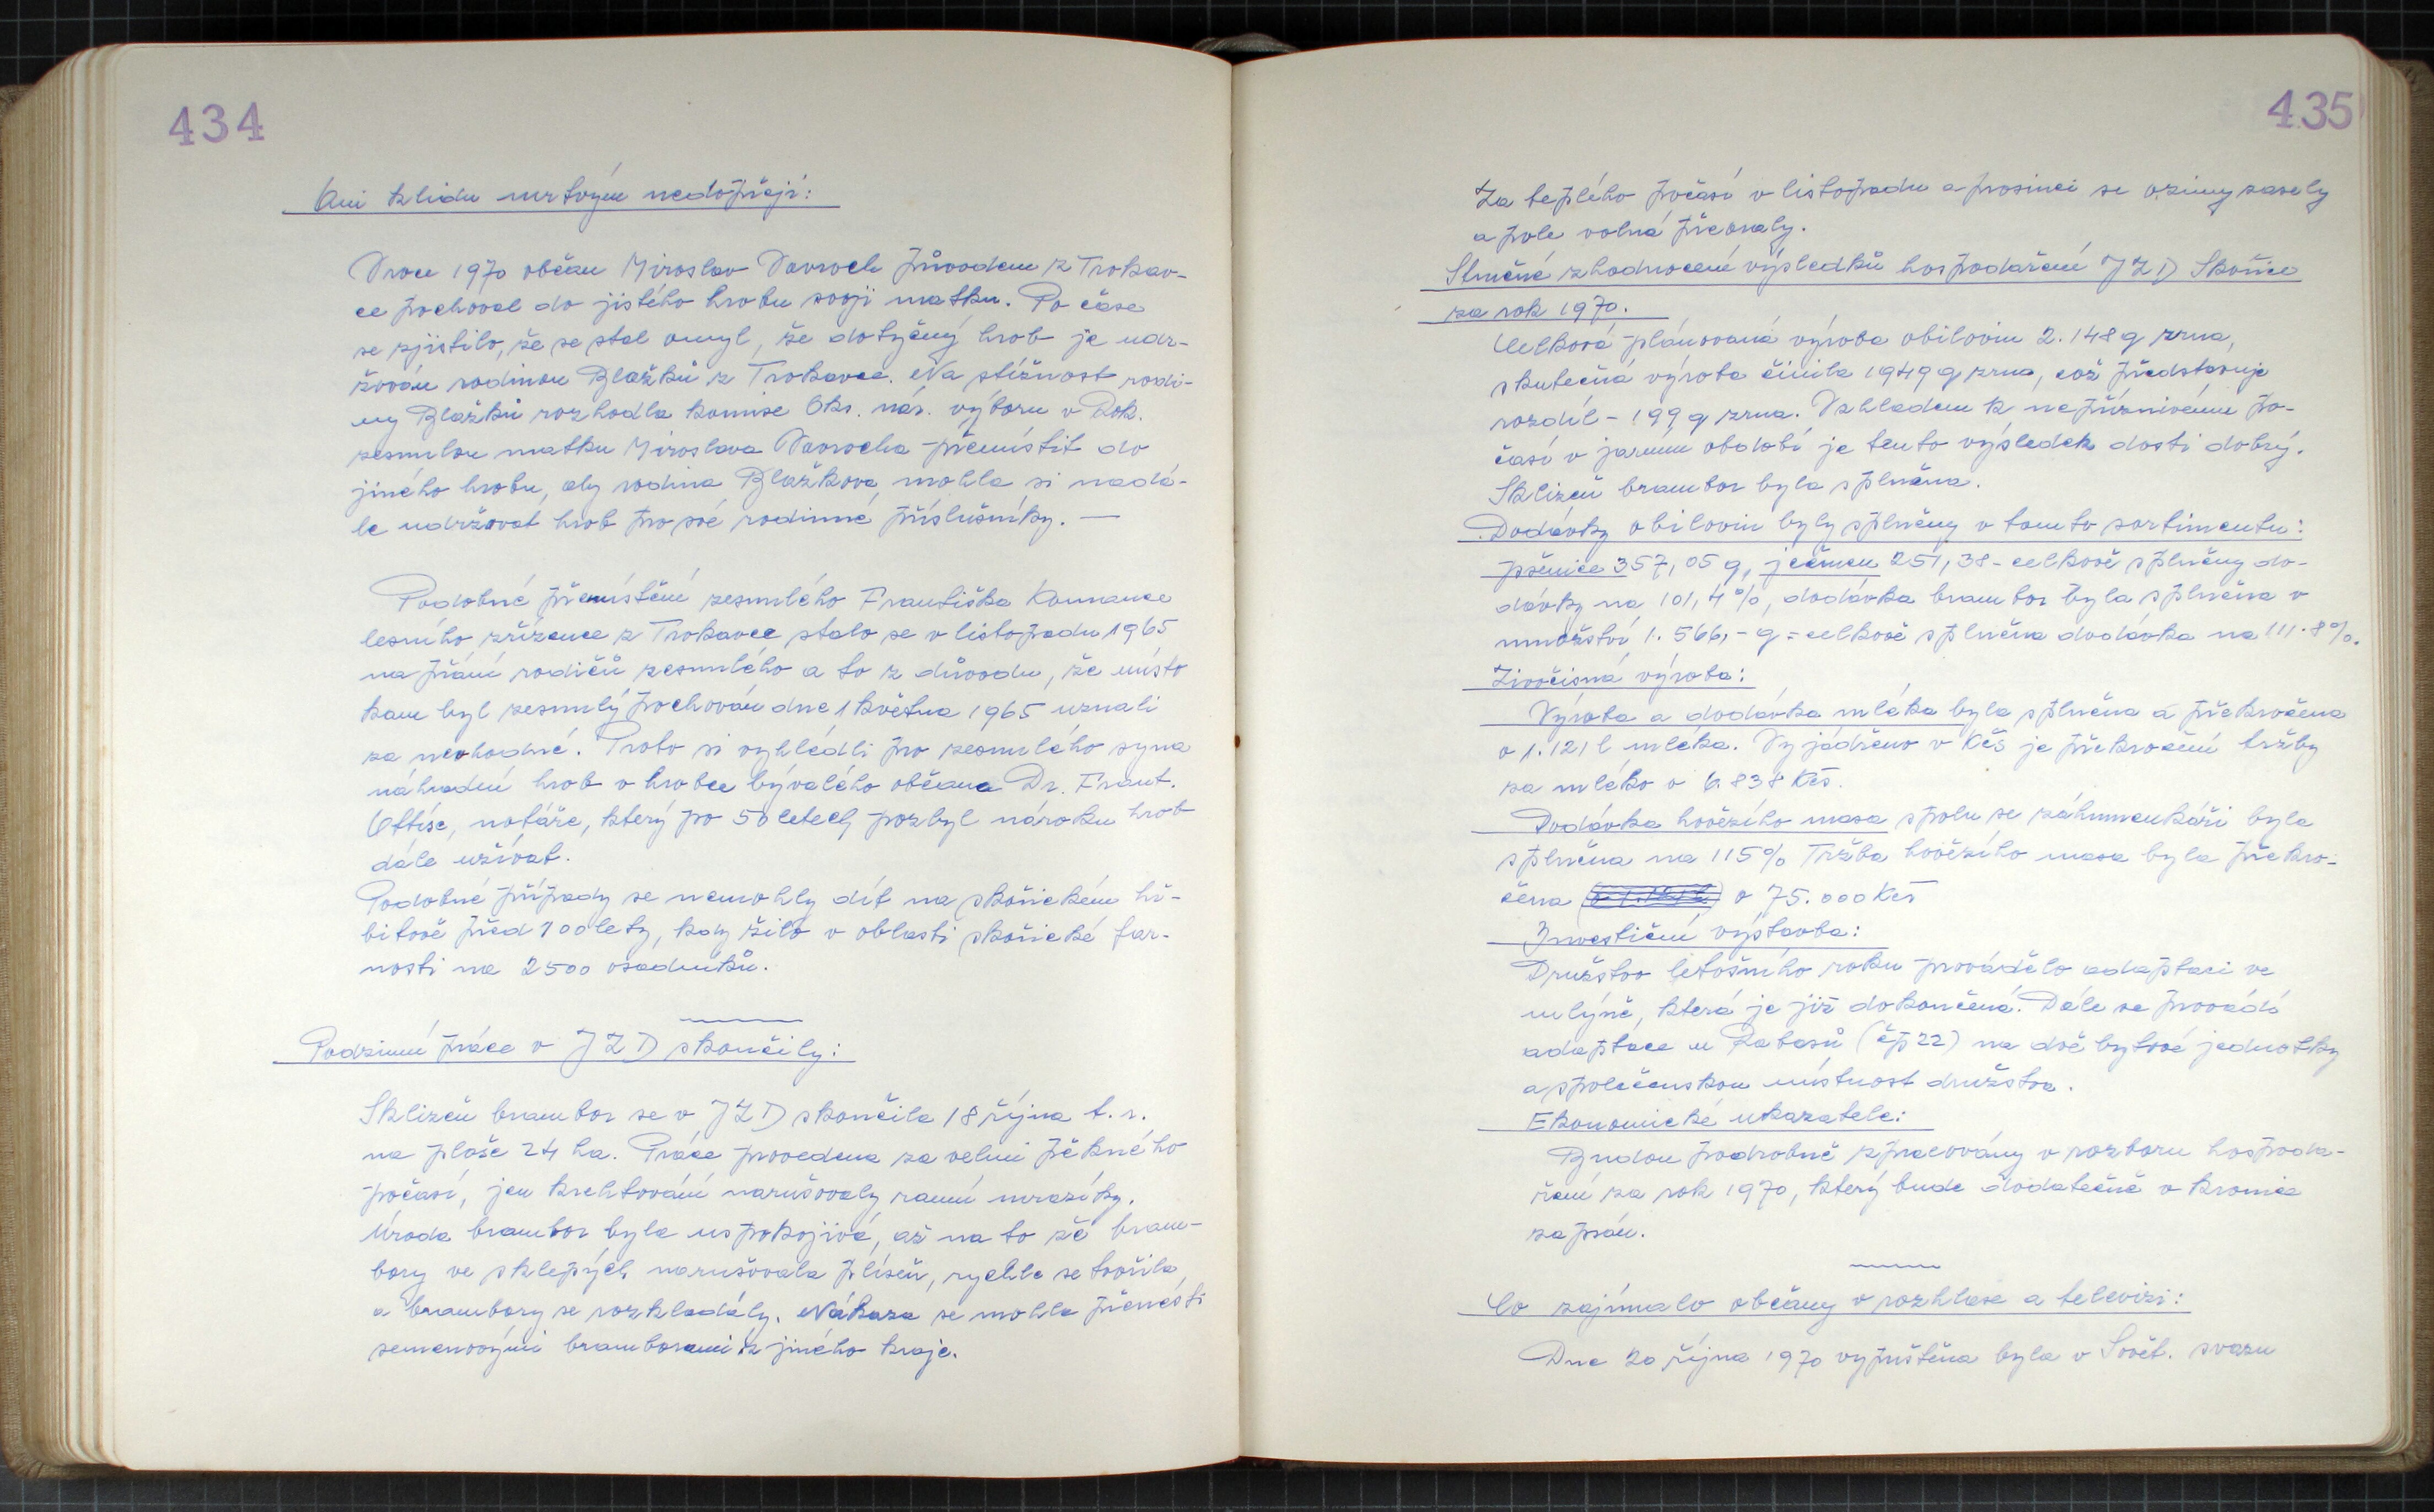 434
Ani klidu mrtvým nedopřejí:
V roce 1970 občan Miroslav Vavroch původem z Trokav-
ce pochoval do jistého hrobu svoji matku. Po čase
se zjistilo, že se stal omyl, že dotyčný hrob je udr-
žován rodinou Blažků z Trokavce. Na stížnost rodi-
ny Blažků rozhodla komise Okr. nár. výboru v Rok.
zesnulou matku Miroslava Vavrocha přemístit do
jiného hrobu, aby rodina Blažkova mohla si nadá-
le udržovat hrob pro své rodinné příslušníky. —
Podobné přemístění zesnulého Františka Kounance
lesního zřízence z Trokavce stalo se v listopadu 1965
na přání rodičů zesnulého a to z důvodu, že místo
kam byl zesnulý pochován dne 1 května 1965 uznali
za nevhodné. Proto si vyhlédli pro zesnulého syna
náhradní hrob v hrobce bývalého občana Dr. Frant.
notáře, který po 50 letech pozbyl nároku hrob
dále užívat.
Podobné případy se nemohly dít na skořickém hř-
bitově před 100 lety, kdy žilo v oblasti skořické far-
nosti na 2500 osadníků.
Podzimní práce v JZD skončily:
Sklizeň brambor se v JZD skončila 18 října t. r.
na ploše 24 ha. Práce provedena za velmi pěkného
počasí, jen krehtování narušovaly ranní mrazíky.
Úroda brambor byla uspokojivá, až na to že bram-
bory ve sklepých narušovala plíseň, rychle se tvořila
a brambory se rozkládály. Nákaza se mohla přenésti
semenovými bramborami z jiného kraje.
435
Za teplého počasí v listopadu a prosinci se ozimy zasely
a pole volná přeoraly.
Stručné zhodnocení výsledků hospodaření JZD Skořice
za rok 1970.
Celková plánovaná výroba obilovin 2.148 q zrna,
skutečná výroba činila 1949 q zrna, což představuje
rozdíl - 199 q zrna. Vzhledem k nepříznivému po-
časí v jarním období je tento výsledek dosti dobrý.
Sklizeň brambor byla splněna.
Dodávky obilovin byly splněny v tomto sortimentu:
pšenice 357,05 q, ječmen 251,38 - celkově splněny do-
dávky na 101,4%, dodávka brambor byla splněna v
množství 1.566,- q = celkově splněna dodávka na 111.8%.
Živočisná výroba:
Výroba a dodávka mléka byla splněna a překročena
o 1.121 l mléka. Vyjádřeno v Kčs je překročení tržby
za mléko o 6.838 Kčs.
Dodávka hovězího masa spolu se záhumenkáři byla
splněna na 115% Tržba hovězího masa byla překro-
čena o 75.000 Kčs
Investiční výstavba:
Družstvo letošního roku provádělo adaptaci ve
mlýně, která je již dokončená. Dále se provádí
adaptace u Rabasů (čp 22) na dvě bytové jednotky
a společenskou místnost družstva.
Ekonomické ukazatele:
Budou podrobně zpracovány v rozboru hospoda-
ření za rok 1970, který bude dodatečně v kronice
zapsán.
Co zajímalo občany v rozhlase a televizi:
Dne 20 října 1970 vypuštěna byla v Sovět. svazu